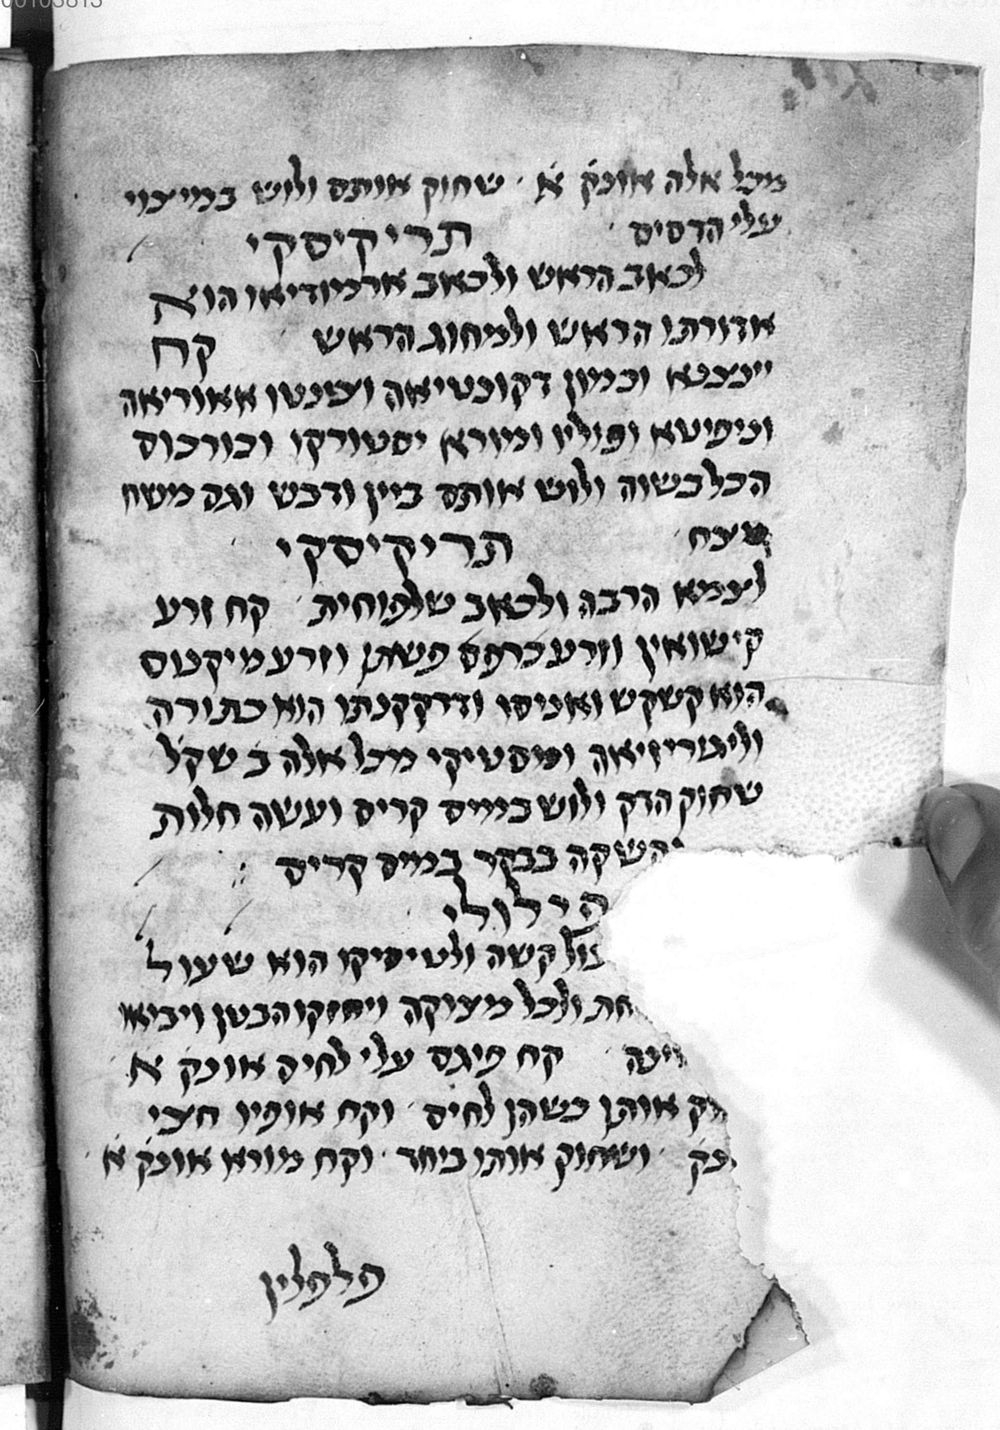 00103813
מכל אלה אונק א שחוק אותם ולוש במי צוי
עלי הדסים תריקיסקי
לכאב הראש ולכאב ארמודיאו הוא
אדורתו הראש ולמחוג הראש קח
וכמון דקוכטיאה ופינטו אאוריאה
וניפיטא ופוליו ומורא יסטורקו וכורכוס
הכל בשוה ולוש אותם ביין ודבש וגם משח
תריקיסקי
לצמא הרבה ולכאב שלפוחית קח זרע
קישואין וזרע כרפס פשתן וזרע מיקטוס
הוא קשקש ואניסו ודרקקנתו הוא כתורה
וליגוריזיאה ומסטיקי מכל אלה ב שקל
שחוק הדק ולוש במים קרים ועשה חלות
והשקה בבקר במים קרים
פילולי
קשה ולטיסיקו הוא שעול
ולכל מצוקה ויחזקו הבטן ויביאו
שינה קח פיגם עלי לחים אונק א
אותן כשהן לחים וקח אופיו חצי
ושחוק אותו ביחד וקח מורא אונק א
פלפלין